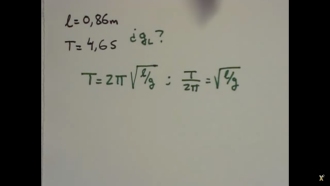 l = 0,86m
T = 4,6s ¿g_L?
T = 2π √l/g ; T/2π = √l/g